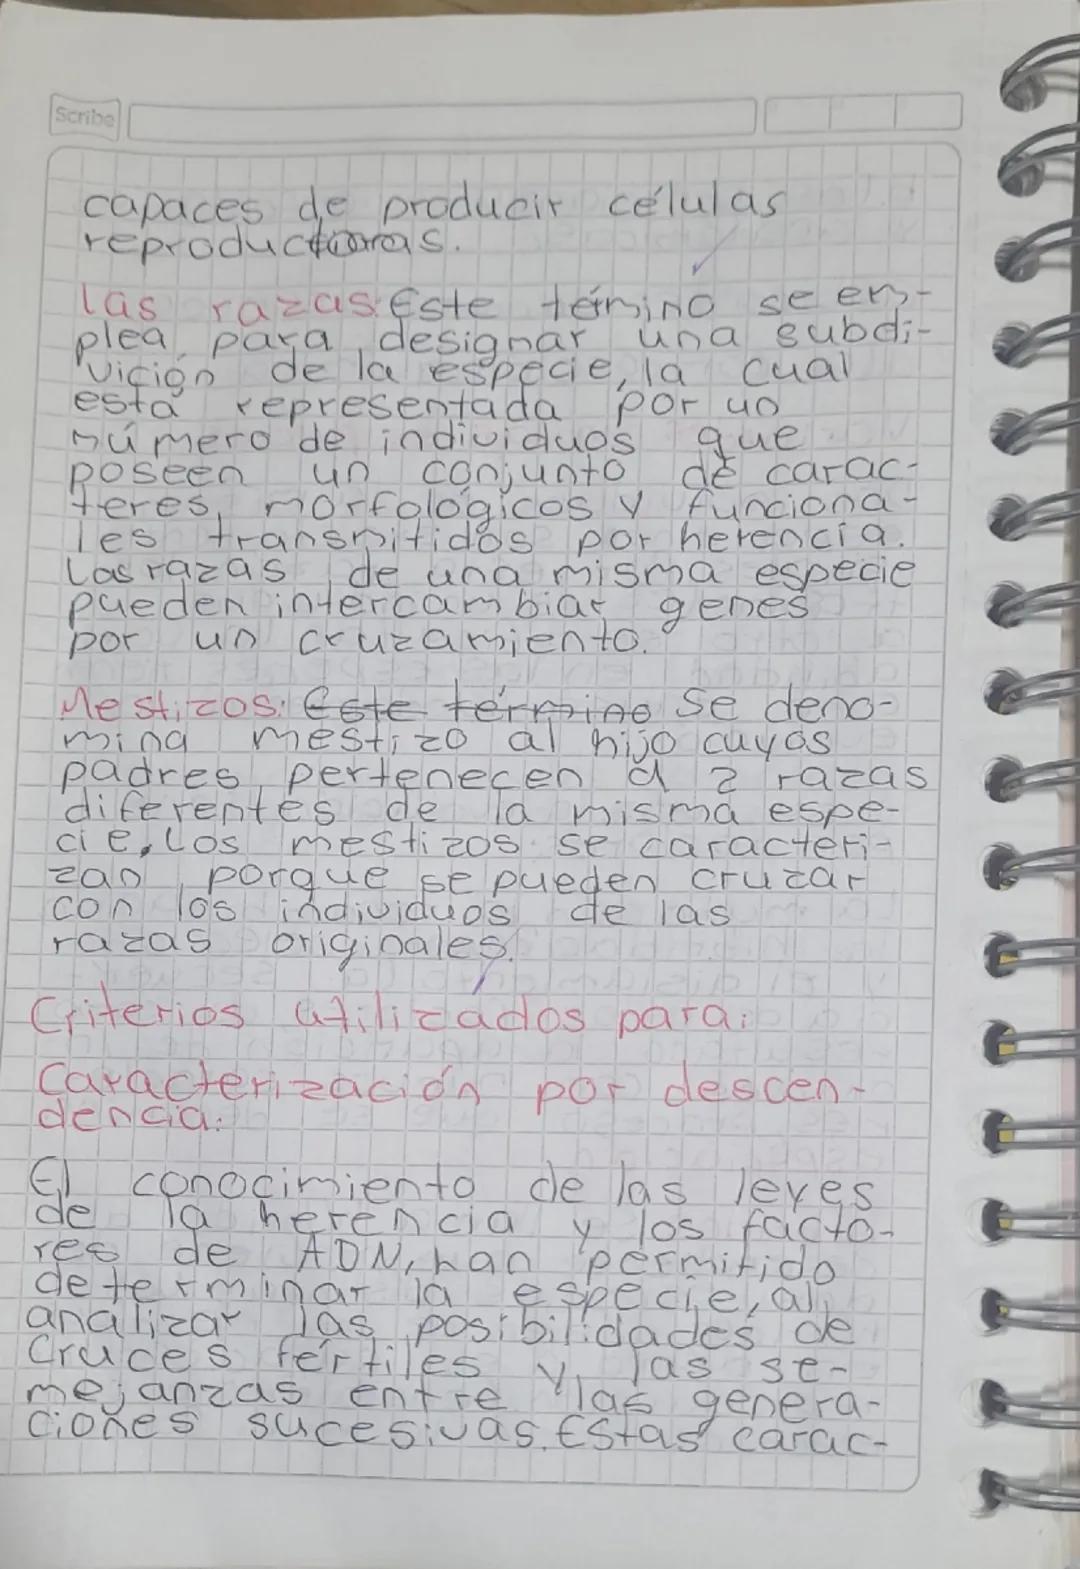 Scribe
capaces de producir células
reproductoras.
las razas: Este término se em-
plea para designar una subdi-
vición de la especie, la cual
está representada por un
número de individuos que
poseen un conjunto de carac-
teres, morfológicos y funciona-
les transmitidos por herencia.
Las razas de una misma especie
pueden intercambiar genes
por un cruzamiento.
Mestizos: Este término Se deno-
mina mestizo al hijo cuyos
padres pertenecen a 2 razas
diferentes de la misma espe-
cie, Los mestizos se caracteri-
zan porque se pueden cruzar
con los individuos de las
razas originales.
Criterios utilizados para:
Caracterización por descen-
dencia:
El conocimiento de las leyes
de la herencia y los facto-
res de ADN, han permitido
determinar la especie, al
analizar las posibilidades de
Cruces fértiles y, las se-
mejanzas entre las genera-
ciones sucesivas. Estas carac-